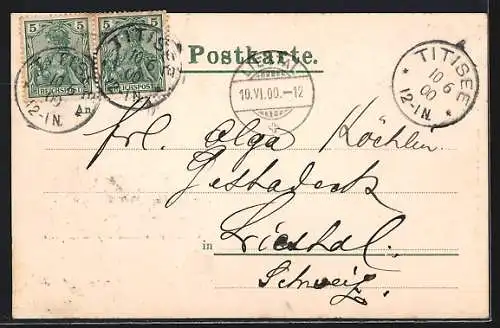 5 5
REICHSPOST REICHSPOST
TITISEE
10 6
00
12-1N.
Postkarte.
10.VI.00.–12
TITISEE
10 6
00
12-1N.
Frl. Olga Köchlin
Gestadeck
in Liesthal.
Schweiz.